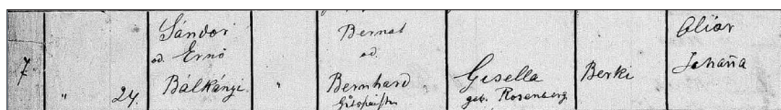 Sándor
od. Ernő
Bálkányi
7
" 24.
"
Bernat
od.
Bernhard
Gisella
geb. Rosenberg
Berki
Johanna